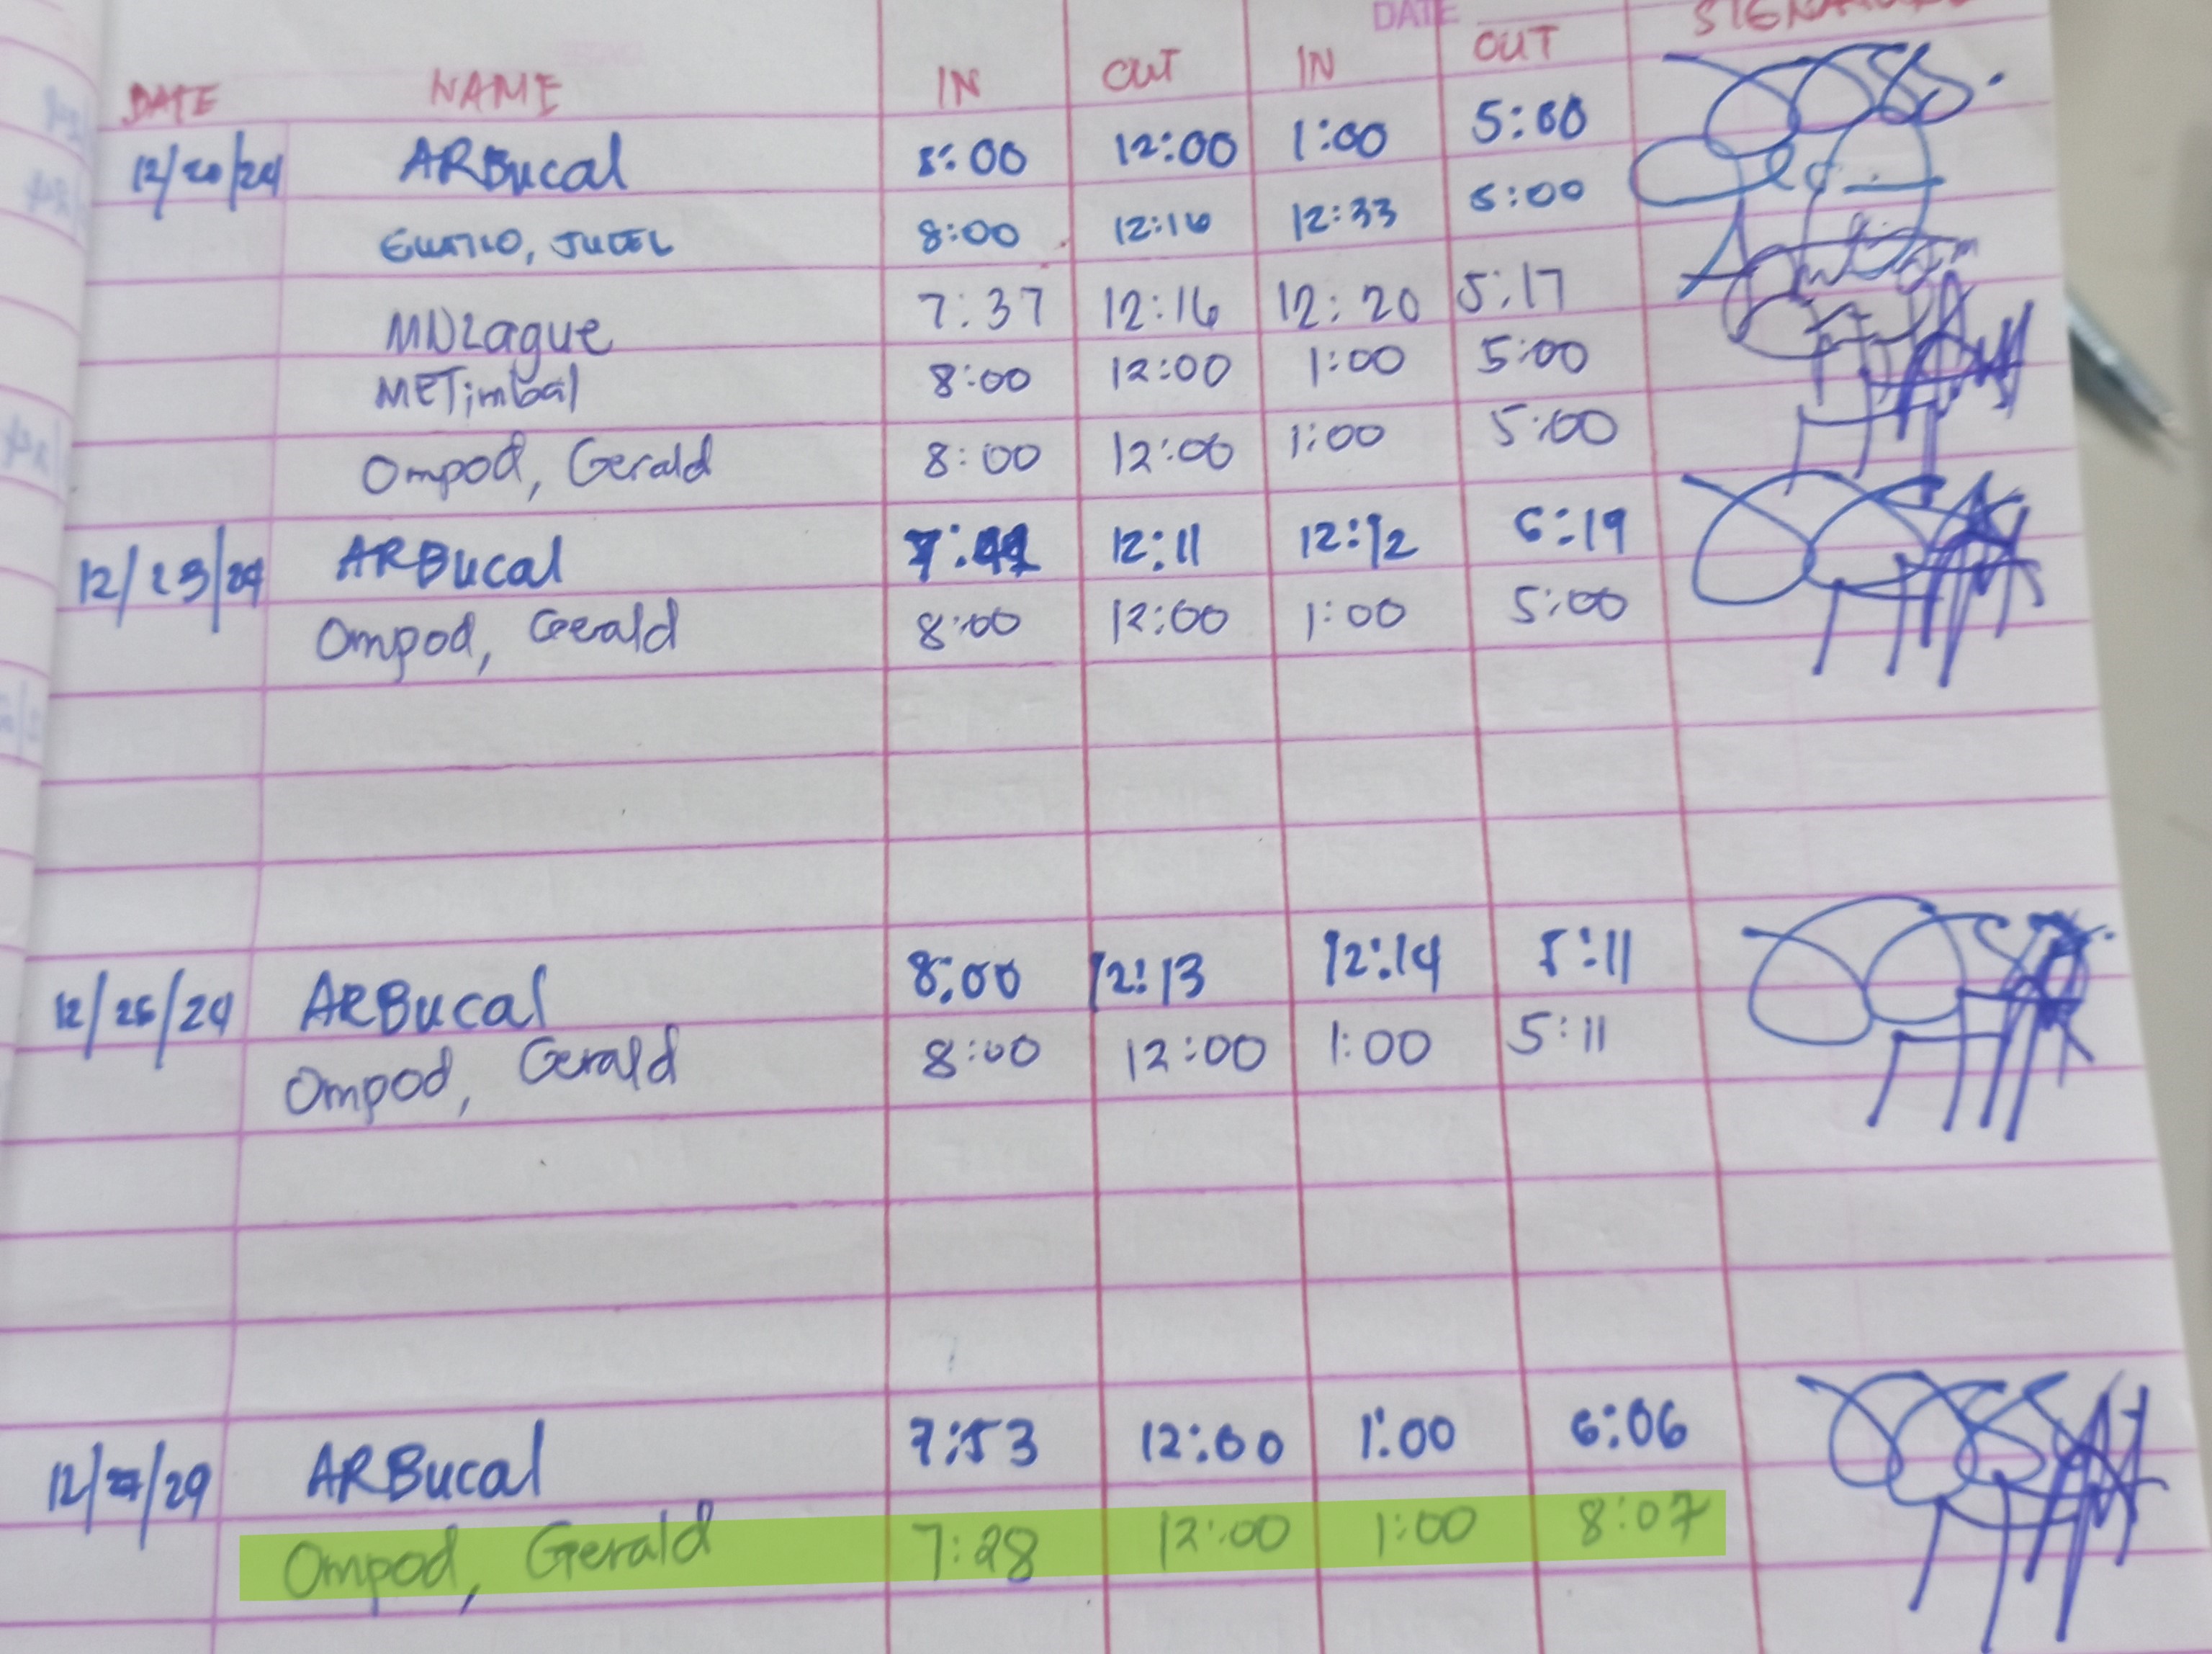 DATE
DATE NAME IN OUT IN OUT SIGNATURE
12/20/24 ARBucal 8:00 12:00 1:00 5:00
8:00 12:16 12:33 5:00
MNLague 7:37 12:16 12:20 5:17
METimbal 8:00 12:00 1:00 5:00
Ompod, Gerald 8:00 12:00 1:00 5:00
12/23/24 ARBucal 12:11 12:12 6:19
Ompod, Gerald 8:00 12:00 1:00 5:00
12/26/24 ARBucal 8:00 12:13 12:14 5:11
Ompod, Gerald 8:00 12:00 1:00 5:11
12/27/24 ARBucal 7:53 12:00 1:00 6:06
Ompod, Gerald 7:28 12:00 1:00 8:07